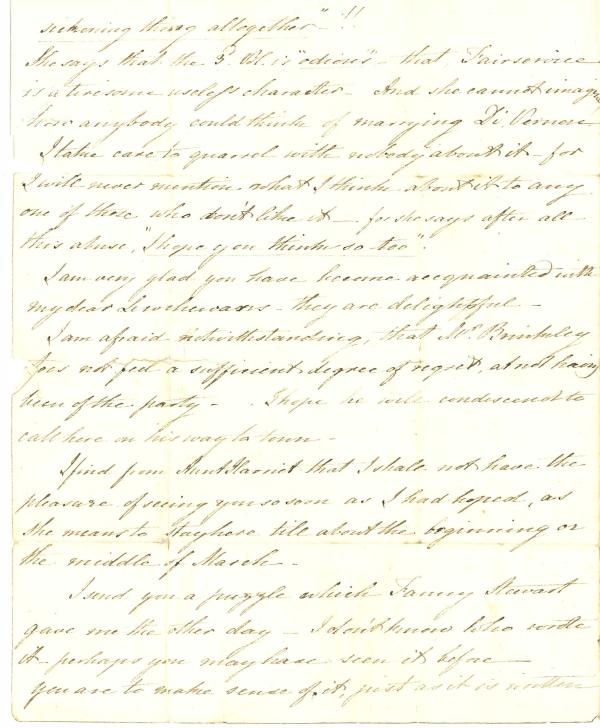 sickening thing altogether" - !!
She says that the B. Bl. is "odious" - that Fairservice
is a tiresome useless character - And she cannot imagine
how anybody could think of marrying Di Vernon
I take care to quarrel with nobody about it - for
I will never mention what I think about it to any
one of those who don't like it - for she says after all
this abuse, "I hope you think so too".
I am very glad you have become acquainted with
my dear - they are delightful -
I am afraid notwithstanding, that Mr. Brinkley
does not feel a sufficient degree of regret, at not having
been of the party - I hope he will condescend to
call here on his way to town -
I find from Aunt Harriet that I shall not have the
pleasure of seeing you so soon as I had hoped, as
she means to stay here till about the beginning or
the middle of March -
I send you a puzzle which Fanny Stewart
gave me the other day - I don't know who wrote
it - perhaps you may have seen it before -
you are to make sense of it, just as it is written